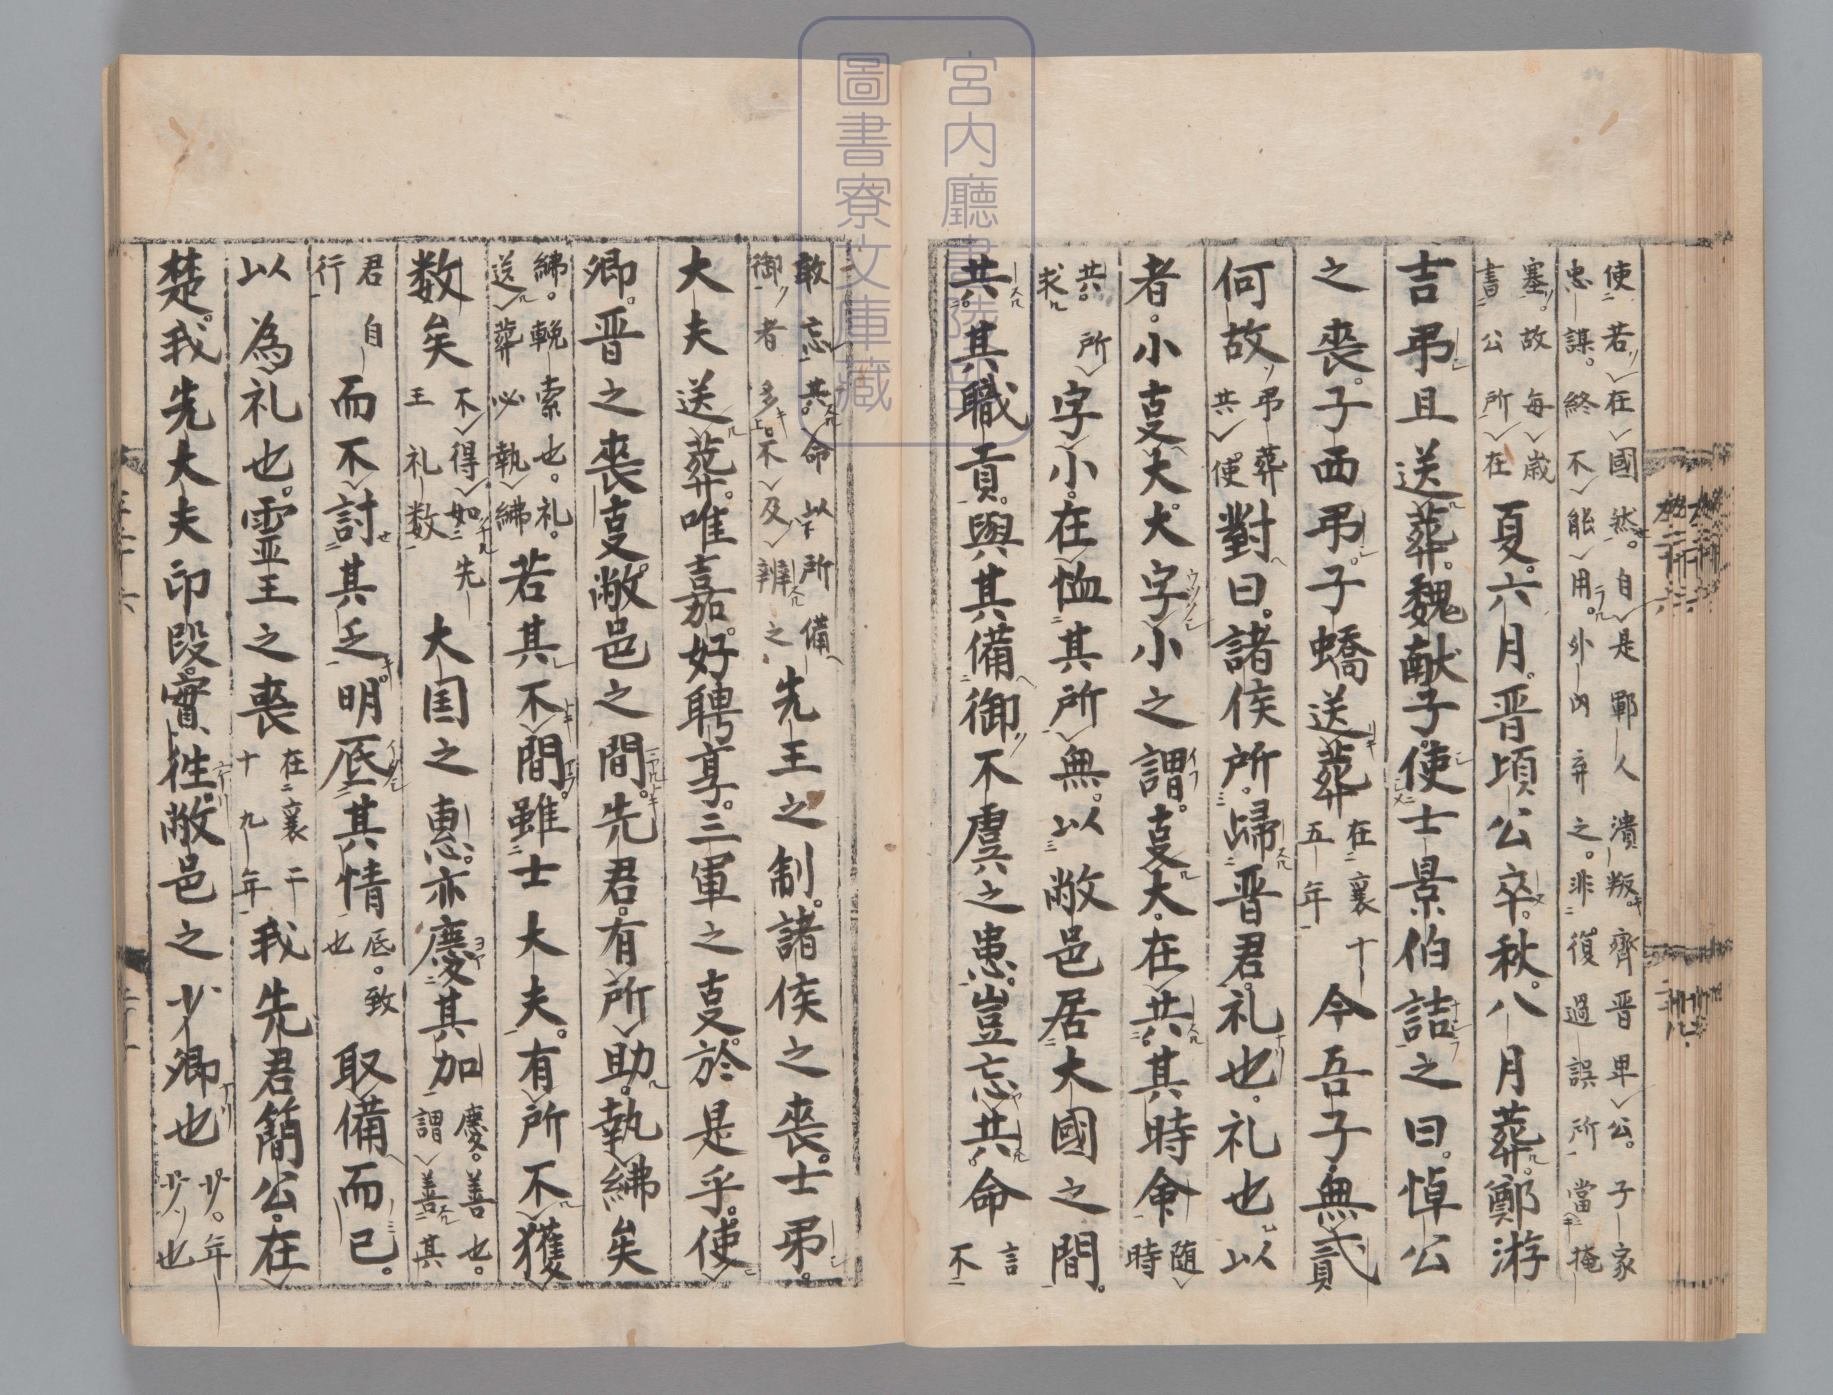 使若在國然。自是鄆人潰叛。齊晋卑公。子家
忠謀。終不能用。外内弃之。非復過誤所當掩
塞。故每歳
書公所在
夏。六月。晋頃公卒。秋。八月葬。鄭游
吉弔且送葬。魏献子使士景伯詰之曰。悼公
之喪。子西弔。子蟜送葬
在襄十
五年
今吾子無貳
何故
弔葬
共使
對曰。諸侯所歸晋君。礼也。礼也以
者。小叓大。大字小之謂。叓大。在共其時命
随
時
共。所
求
字小。在恤其所無。以敝邑居大國之間。
共其職貢。與其備御不虞之患。豈忘共命
言
不
敢忘共命以所備
御者多。不及辨之
先王之制。諸侯之喪。士弔。
大夫送葬。唯嘉好。聘享。三軍之叓。於是乎。使
卿。晋之喪叓。敝邑之間。先君。有所助。執紼矣
紼。輓索也。礼。
送葬必執紼
若其不間。雖士大夫。有所不獲
数矣
不得如先
王礼数
大国之惠。亦慶其加
慶。善也。
謂善其
君自
行
而不討其乏。明厎其情
厎。致
也
取備而已。
以為礼也。霊王之喪
在襄二
十九年
我先君簡公。在
楚。我先大夫印段。實往。敝邑之少卿也
少。年
少也
宮内廳書陵部
圖書寮文庫藏